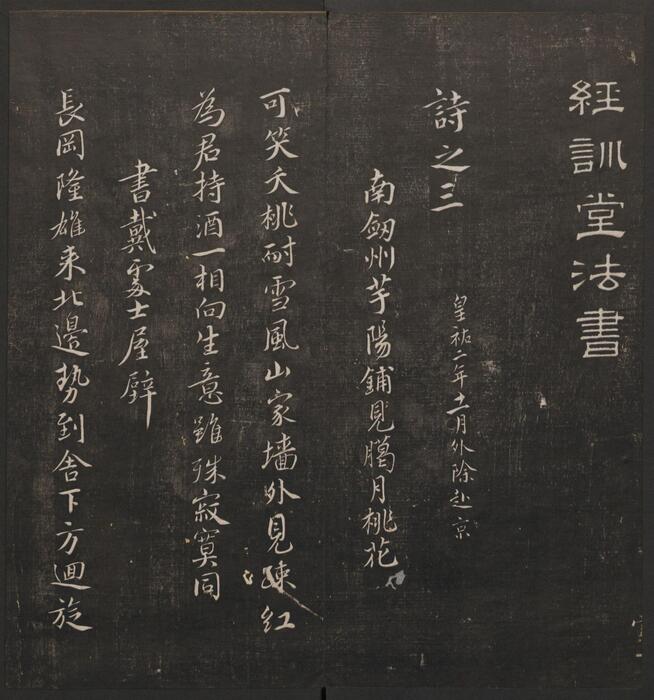 經訓堂法書
詩之三
皇祐二年十一月外除赴京
南劒州芋陽鋪見臈月桃花
可笑夭桃耐雪風山家墻外見踈紅
為君持酒一相向生意雖殊寂寞同
書戴處士屋壁
長岡隆雄来北邊勢到舍下方迴旋